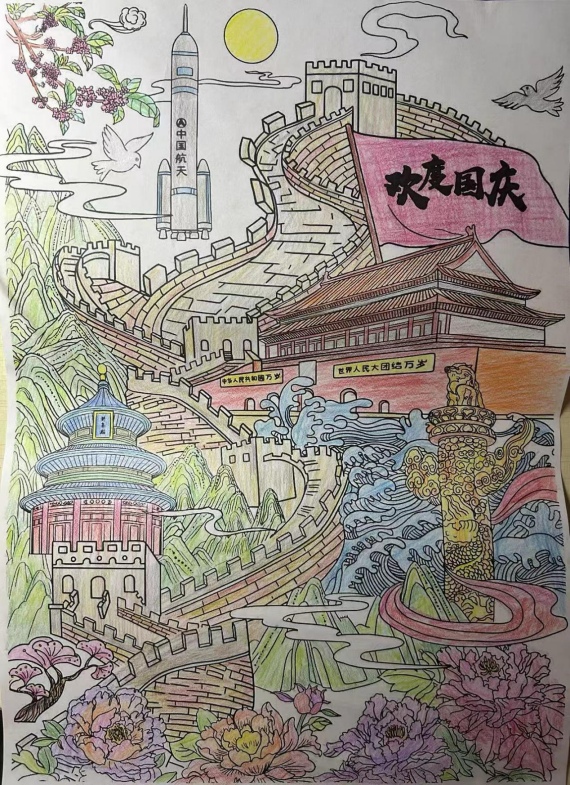 中国航天
欢度国庆
中华人民共和国万岁
世界人民大团结万岁
祈年殿